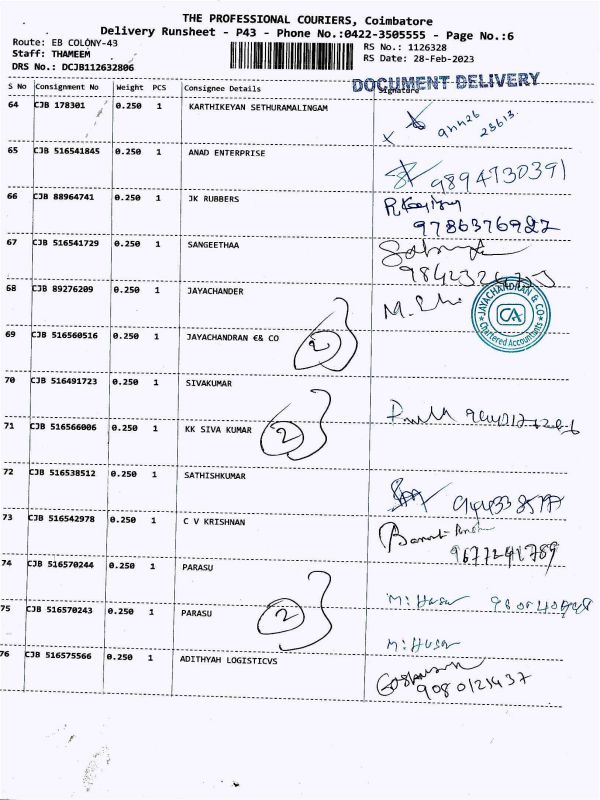 THE PROFESSIONAL COURIERS, Coimbatore
Delivery Runsheet - P43 - Phone No.:0422-3505555 - Page No.:6
Route: EB COLONY-43 RS No.: 1126328
Staff: THAMEEM RS Date: 28-Feb-2023
DRS No.: DCJB112632806
DOCUMENT DELIVERY
S No Consignment No Weight PCS Consignee Details Signature
64 CJB 178301 0.250 1 KARTHIKEYAN SETHURAMALINGAM
65 CJB 516541845 0.250 1 ANAD ENTERPRISE
9894730391
66 CJB 88964741 0.250 1 JK RUBBERS
67 CJB 516541729 0.250 1 SANGEETHAA
68 CJB 89276209 0.250 1 JAYACHANDER
JAYACHANDRAN & CO
CA
Chartered Accountants
69 CJB 516560516 0.250 1 JAYACHANDRAN €& CO
2
70 CJB 516491723 0.250 1 SIVAKUMAR
71 CJB 516566006 0.250 1 KK SIVA KUMAR
2
72 CJB 516538512 0.250 1 SATHISHKUMAR
73 CJB 516542978 0.250 1 C V KRISHNAN
9677241789
74 CJB 516570244 0.250 1 PARASU
75 CJB 516570243 0.250 1 PARASU
2
76 CJB 516575566 0.250 1 ADITHYAH LOGISTICVS
9080121437